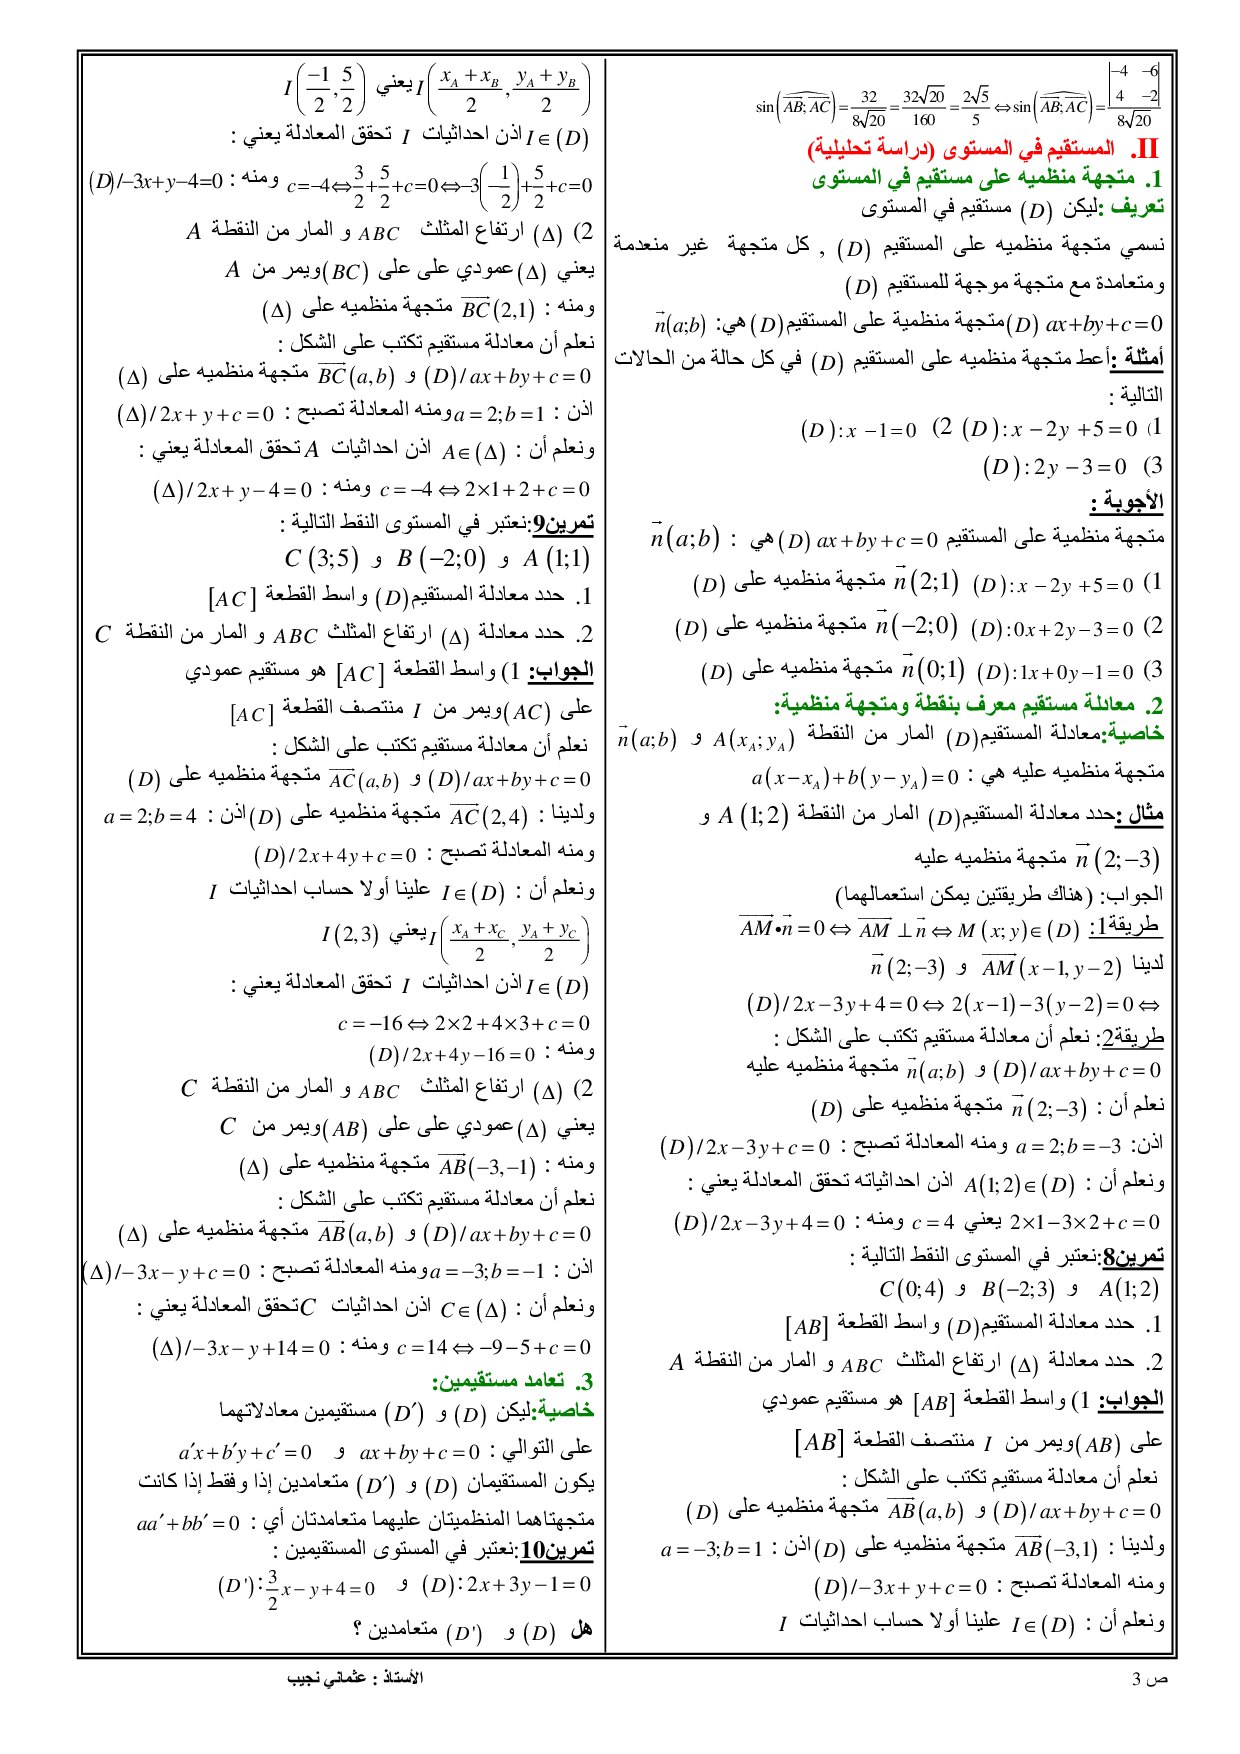 sin(AB;AC) = 32/8√20 = 32√20/160 = 2√5/5 ⇔ sin(AB;AC) = |−4 −6; 4 −2|/8√20
II. المستقيم في المستوى (دراسة تحليلية)
1. متجهة منظميه على مستقيم في المستوى
تعريف :ليكن (D) مستقيم في المستوى
نسمي متجهة منظميه على المستقيم (D) , كل متجهة غير منعدمة
ومتعامدة مع متجهة موجهة للمستقيم (D)
ax+by+c=0 (D)متجهة منظمية على المستقيم(D) هي: n(a;b)
أمثلة :أعط متجهة منظميه على المستقيم (D) في كل حالة من الحالات
التالية :
1) (D): x−2y+5=0 2) (D): x−1=0
3) (D): 2y−3=0
الأجوبة :
متجهة منظمية على المستقيم ax+by+c=0 (D) هي : n(a;b)
1) (D): x−2y+5=0 n(2;1) متجهة منظميه على (D)
2) (D): 0x+2y−3=0 n(−2;0) متجهة منظميه على (D)
3) (D): 1x+0y−1=0 n(0;1) متجهة منظميه على (D)
2. معادلة مستقيم معرف بنقطة ومتجهة منظمية:
خاصية:معادلة المستقيم(D) المار من النقطة A(xA;yA) و n(a;b)
متجهة منظميه عليه هي : a(x−xA)+b(y−yA)=0
مثال :حدد معادلة المستقيم(D) المار من النقطة A(1;2) و
n(2;−3) متجهة منظميه عليه
الجواب: (هناك طريقتين يمكن استعمالهما)
طريقة1: AM•n=0 ⇔ AM⊥n ⇔ M(x;y)∈(D)
لدينا AM(x−1,y−2) و n(2;−3)
(D)/2x−3y+4=0 ⇔ 2(x−1)−3(y−2)=0 ⇔
طريقة2: نعلم أن معادلة مستقيم تكتب على الشكل :
(D)/ax+by+c=0 و n(a;b) متجهة منظميه عليه
نعلم أن : n(2;−3) متجهة منظميه على (D)
اذن: a=2;b=−3 ومنه المعادلة تصبح : (D)/2x−3y+c=0
ونعلم أن : A(1;2)∈(D) اذن احداثياته تحقق المعادلة يعني :
2×1−3×2+c=0 يعني c=4 ومنه : (D)/2x−3y+4=0
تمرين8:نعتبر في المستوى النقط التالية :
A(1;2) و B(−2;3) و C(0;4)
1. حدد معادلة المستقيم(D) واسط القطعة [AB]
2. حدد معادلة (Δ) ارتفاع المثلث ABC و المار من النقطة A
الجواب: 1) واسط القطعة [AB] هو مستقيم عمودي
على (AB)ويمر من I منتصف القطعة [AB]
نعلم أن معادلة مستقيم تكتب على الشكل :
(D)/ax+by+c=0 و AB(a,b) متجهة منظميه على (D)
ولدينا : AB(−3,1) متجهة منظميه على (D)اذن : a=−3;b=1
ومنه المعادلة تصبح : (D)/−3x+y+c=0
ونعلم أن : I∈(D) علينا أولا حساب احداثيات I
I((xA+xB)/2, (yA+yB)/2) يعني I(−1/2, 5/2)
I∈(D)اذن احداثيات I تحقق المعادلة يعني :
c=−4 ⇔ 3/2+5/2+c=0 ⇔ −3(−1/2)+5/2+c=0 ومنه : (D)/−3x+y−4=0
2) (Δ) ارتفاع المثلث ABC و المار من النقطة A
يعني (Δ)عمودي على على (BC)ويمر من A
ومنه : BC(2,1) متجهة منظميه على (Δ)
نعلم أن معادلة مستقيم تكتب على الشكل :
(D)/ax+by+c=0 و BC(a,b) متجهة منظميه على (Δ)
اذن : a=2;b=1ومنه المعادلة تصبح : (Δ)/2x+y+c=0
ونعلم أن : A∈(Δ) اذن احداثيات A تحقق المعادلة يعني :
c=−4 ⇔ 2×1+2+c=0 ومنه : (Δ)/2x+y−4=0
تمرين9:نعتبر في المستوى النقط التالية :
A(1;1) و B(−2;0) و C(3;5)
1. حدد معادلة المستقيم(D) واسط القطعة [AC]
2. حدد معادلة (Δ) ارتفاع المثلث ABC و المار من النقطة C
الجواب: 1) واسط القطعة [AC] هو مستقيم عمودي
على (AC)ويمر من I منتصف القطعة [AC]
نعلم أن معادلة مستقيم تكتب على الشكل :
(D)/ax+by+c=0 و AC(a,b) متجهة منظميه على (D)
ولدينا : AC(2,4) متجهة منظميه على (D)اذن : a=2;b=4
ومنه المعادلة تصبح : (D)/2x+4y+c=0
ونعلم أن : I∈(D) علينا أولا حساب احداثيات I
I((xA+xC)/2, (yA+yC)/2) يعني I(2,3)
I∈(D)اذن احداثيات I تحقق المعادلة يعني :
c=−16 ⇔ 2×2+4×3+c=0
ومنه : (D)/2x+4y−16=0
2) (Δ) ارتفاع المثلث ABC و المار من النقطة C
يعني (Δ)عمودي على على (AB)ويمر من C
ومنه : AB(−3,−1) متجهة منظميه على (Δ)
نعلم أن معادلة مستقيم تكتب على الشكل :
(D)/ax+by+c=0 و AB(a,b) متجهة منظميه على (Δ)
اذن : a=−3;b=−1ومنه المعادلة تصبح : (Δ)/−3x−y+c=0
ونعلم أن : C∈(Δ) اذن احداثيات C تحقق المعادلة يعني :
c=14 ⇔ −9−5+c=0 ومنه : (Δ)/−3x−y+14=0
3. تعامد مستقيمين:
خاصية:ليكن (D) و (D′) مستقيمين معادلاتهما
على التوالي : ax+by+c=0 و a′x+b′y+c′=0
يكون المستقيمان (D) و (D′) متعامدين إذا وفقط إذا كانت
متجهتاهما المنظميتان عليهما متعامدتان أي : aa′+bb′=0
تمرين10:نعتبر في المستوى المستقيمين :
(D): 2x+3y−1=0 و (D'): 3/2x−y+4=0
هل (D) و (D') متعامدين ؟
ص 3
الأستاذ : عثماني نجيب